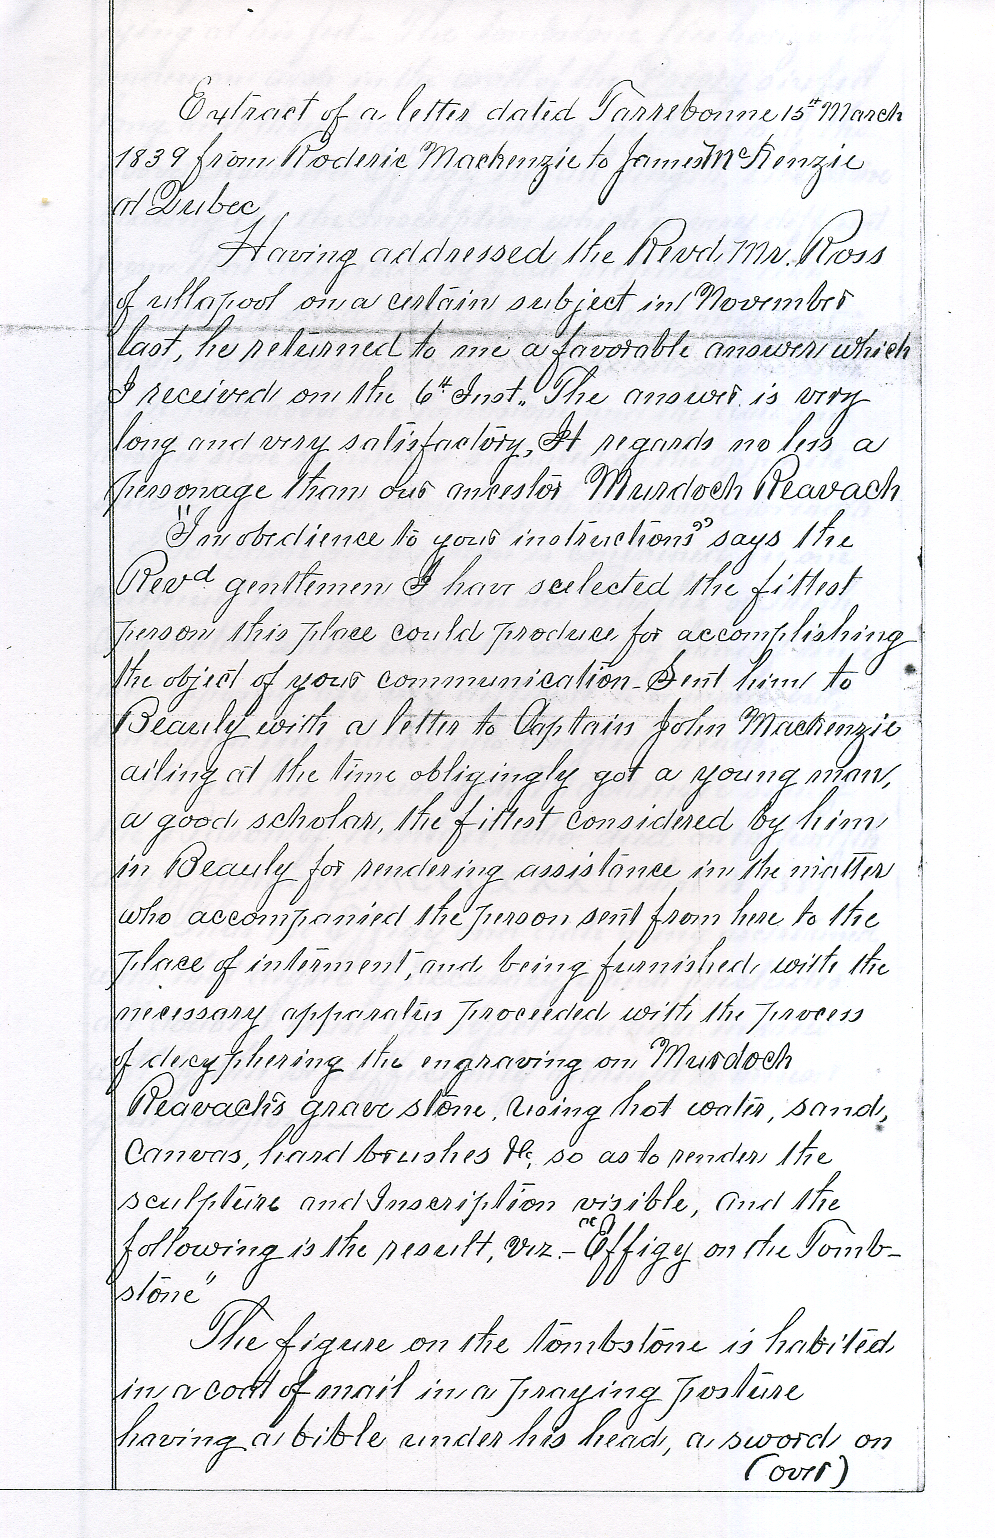 Extract of a letter dated Tarrebonne 15th March
1839 from Roderic Mackenzie to James McKenzie
at Qubec
Having addressed the Revd. Mr. Ross
of ullapool on a certain subject in November
last, he returned to me a favorable answer which
I received on the 6th Inst.. The answer is very
long and very satisfactory, It regards no less a
personage than our ancestor Murdoch Reavach
"In obedience to your instructions" says the
Revd gentlemen I have scelected the fittest
person this place could produce for accomplishing
the object of your communication - Sent him to
Beauly with a letter to Captain John Mackenzie
ailing at the time obligingly got a young man,
a good scholar, the fittest considered by him
in Beauly for rendering assistance in the matter
who accompanied the person sent from here to the
place of interment, and being furnished with the
necessary apparatus proceeded with the process
of decyphering the engraving on Murdoch
Reavach's grave stone, using hot water, sand,
canvas, hard brushes &c, so as to render the
sculpture and Inscription visible, and the
following is the result, viz. - "Effigy on the Tomb-
stone"
The figure on the tombstone is habited
in a coat of mail in a praying posture
having a bible under his head, a sword on
(over)